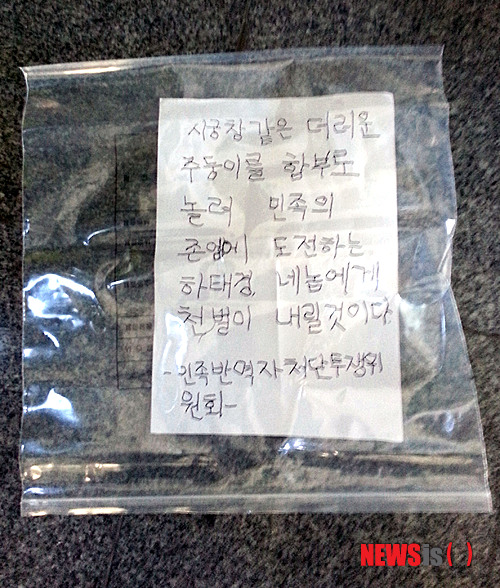 시궁창같은 더러운
주둥이를 함부로
놀려 민족의
존엄에 도전하는
하태경, 네놈에게
천벌이 내릴것이다.
-민족반역자처단투쟁위
원회-
NEWSis( )